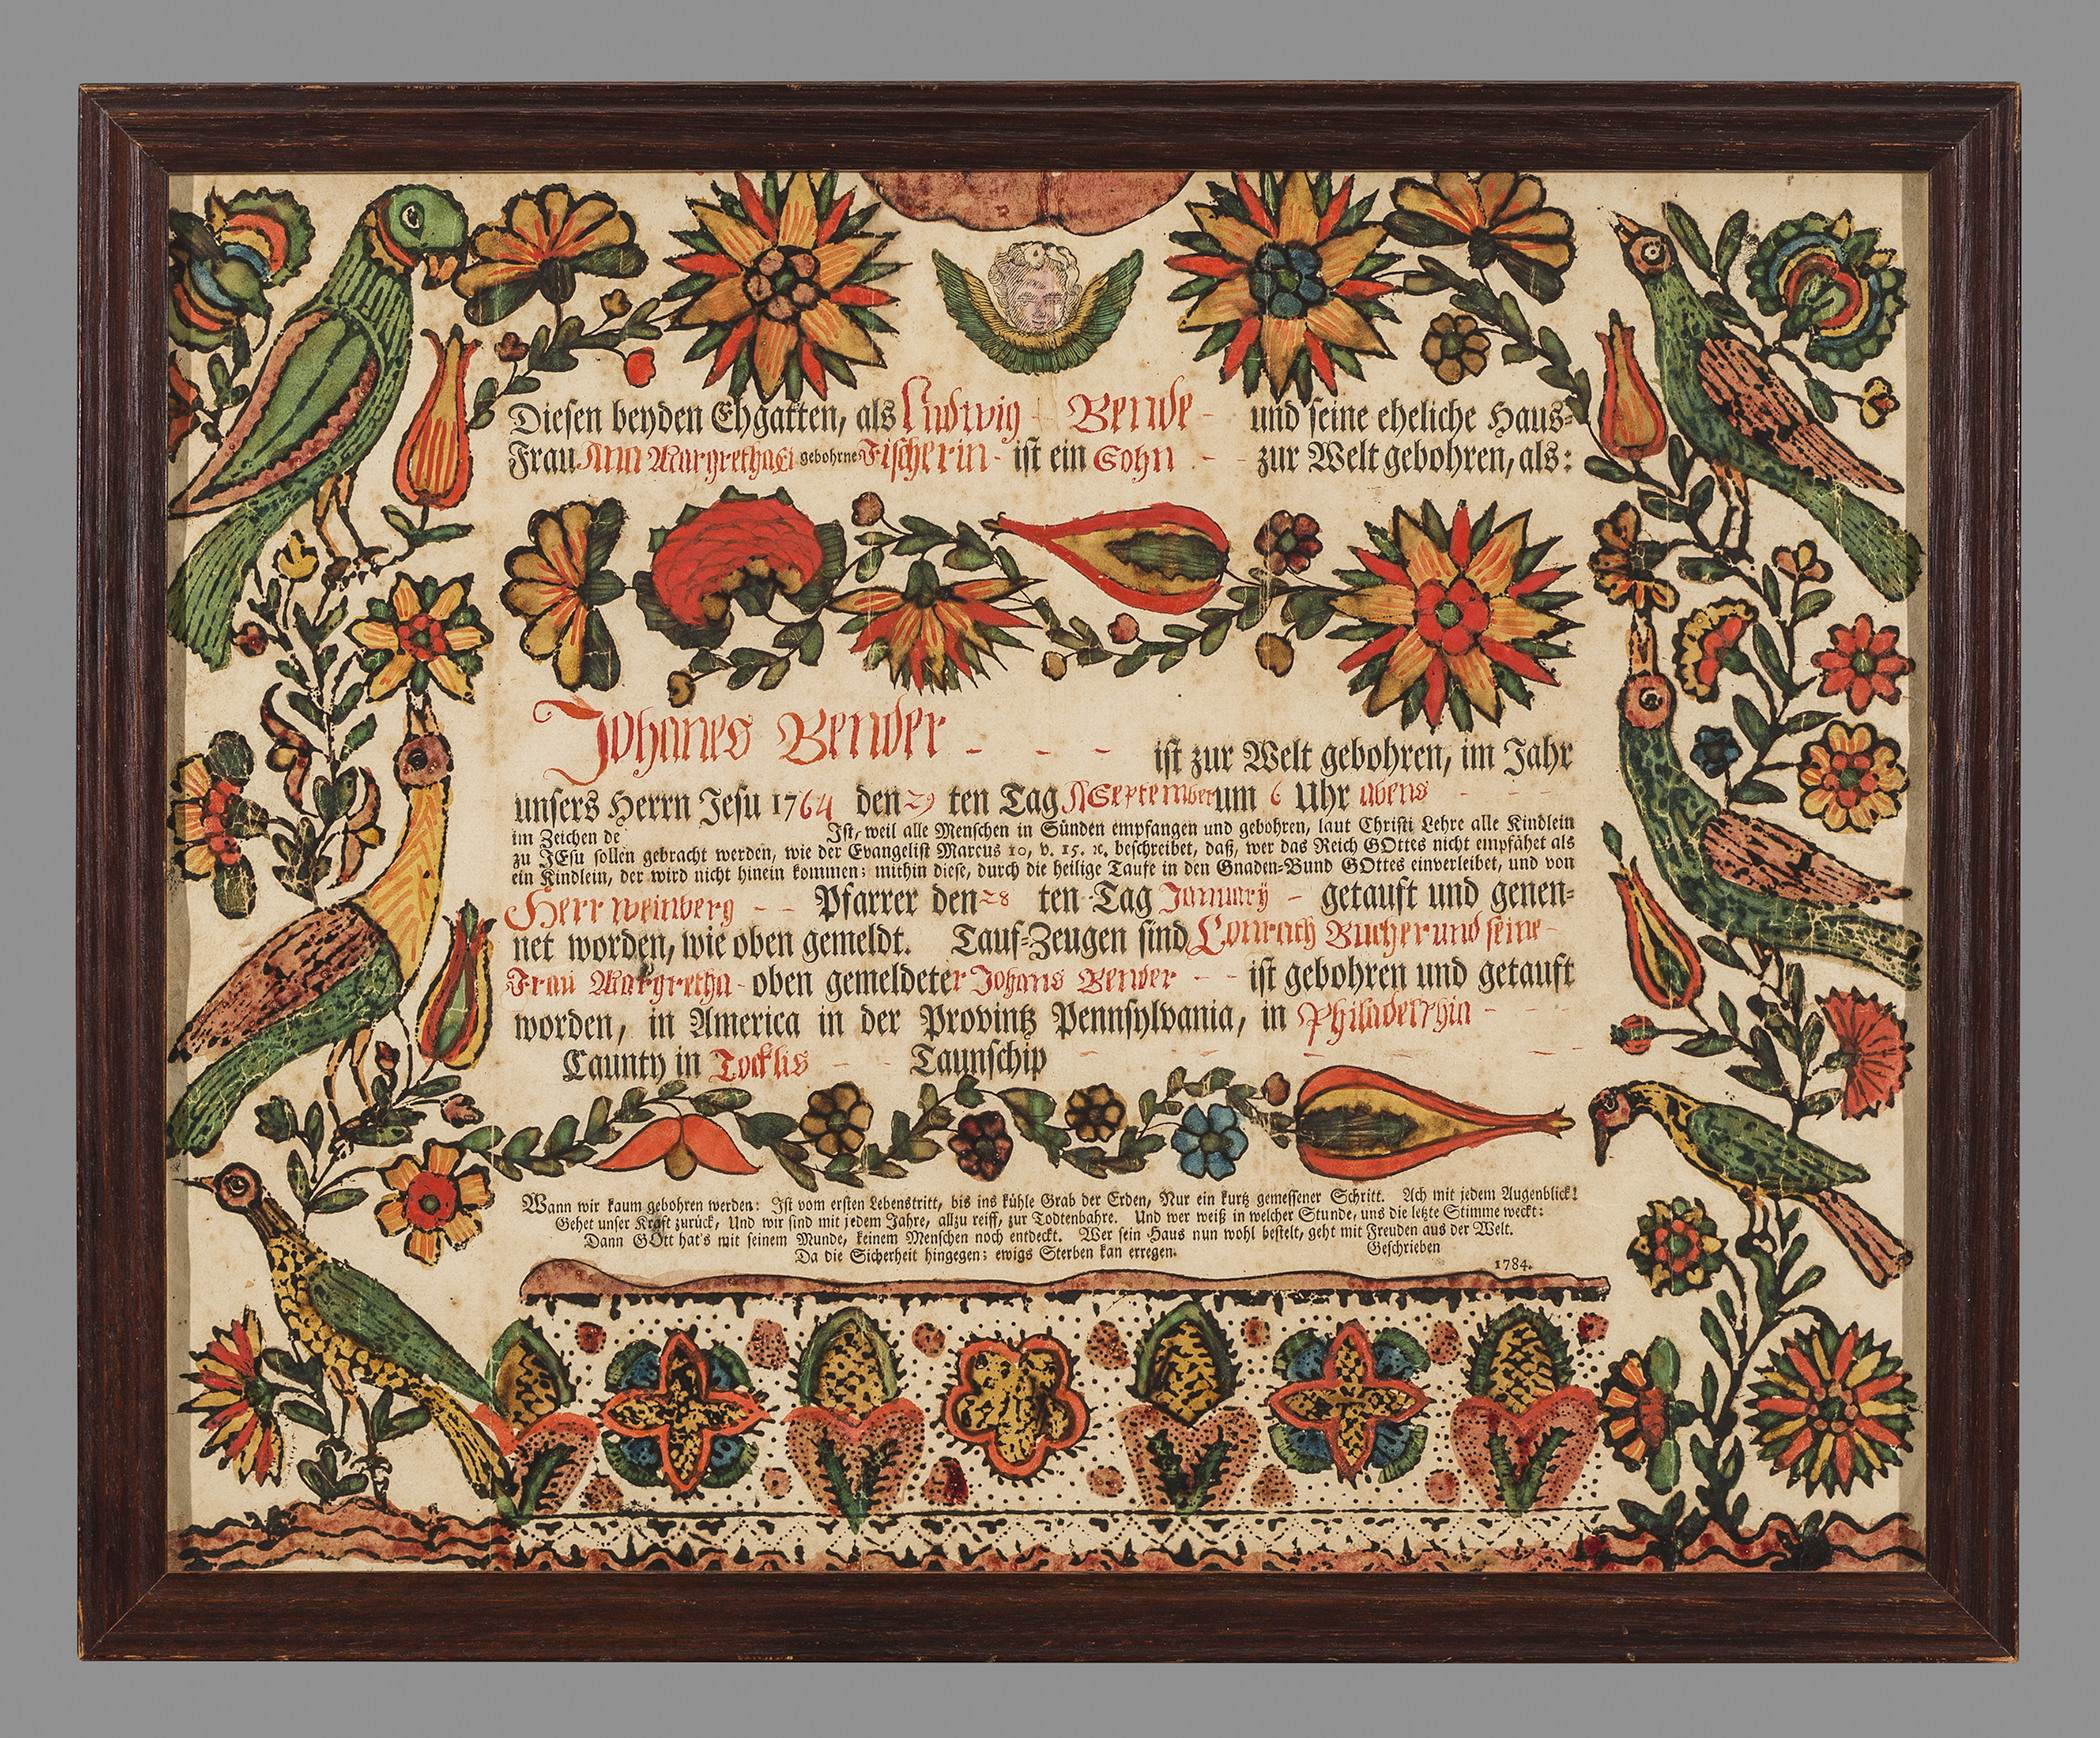 Diesen beyden Ehgatten, als Ludwig Bende - und seine eheliche Haus=
Frau Ann Margretha gebohrne Fischerin - ist ein Sohn - - zur Welt gebohren, als:
Johanes Bender - - - ist zur Welt gebohren, im Jahr
unsers Herrn Jesu 1764 den 29 ten Tag September um 6 Uhr abens - - -
im Zeichen de Ist, weil alle Menschen in Sünden empfangen und gebohren, laut Christi Lehre alle Kindlein
zu JEsu sollen gebracht werden, wie der Evangelist Marcus 10, v. 15. ꝛc. beschreibet, daß, wer das Reich GOttes nicht empfähet als
ein Kindlein, der wird nicht hinein kommen; mithin diese, durch die heilige Taufe in den Gnaden=Bund GOttes einverleibet, und von
Herr Weinberg - - Pfarrer den 28 ten Tag Januarÿ - getauft und genen=
net worden, wie oben gemeldt. Tauf=Zeugen sind Conrath Bucher und seine -
Frau Margretha - oben gemeldeter Johans Bender - - ist gebohren und getauft
worden, in America in der Provintz Pennsylvania, in Philadelphia - - -
Caunty in Tocklis - - Taunschip - - - - -
Wann wir kaum gebohren werden: Ist vom ersten Lebenstritt, bis ins kühle Grab der Erden, Nur ein kurtz gemessener Schritt. Ach mit jedem Augenblick!
Gehet unser Kraft zurück, Und wir sind mit jedem Jahre, allzu reiff, zur Todtenbahre. Und wer weiß in welcher Stunde, uns die letzte Stimme weckt:
Dann GOtt hat's mit seinem Munde, keinem Menschen noch entdeckt. Wer sein Haus nun wohl bestelt, geht mit Freuden aus der Welt.
Da die Sicherheit hingegen; ewigs Sterben kan erregen. Geschrieben
1784.